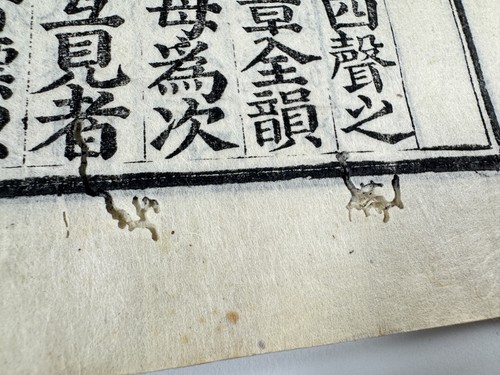 四聲之
章全韻
母爲次
互見者